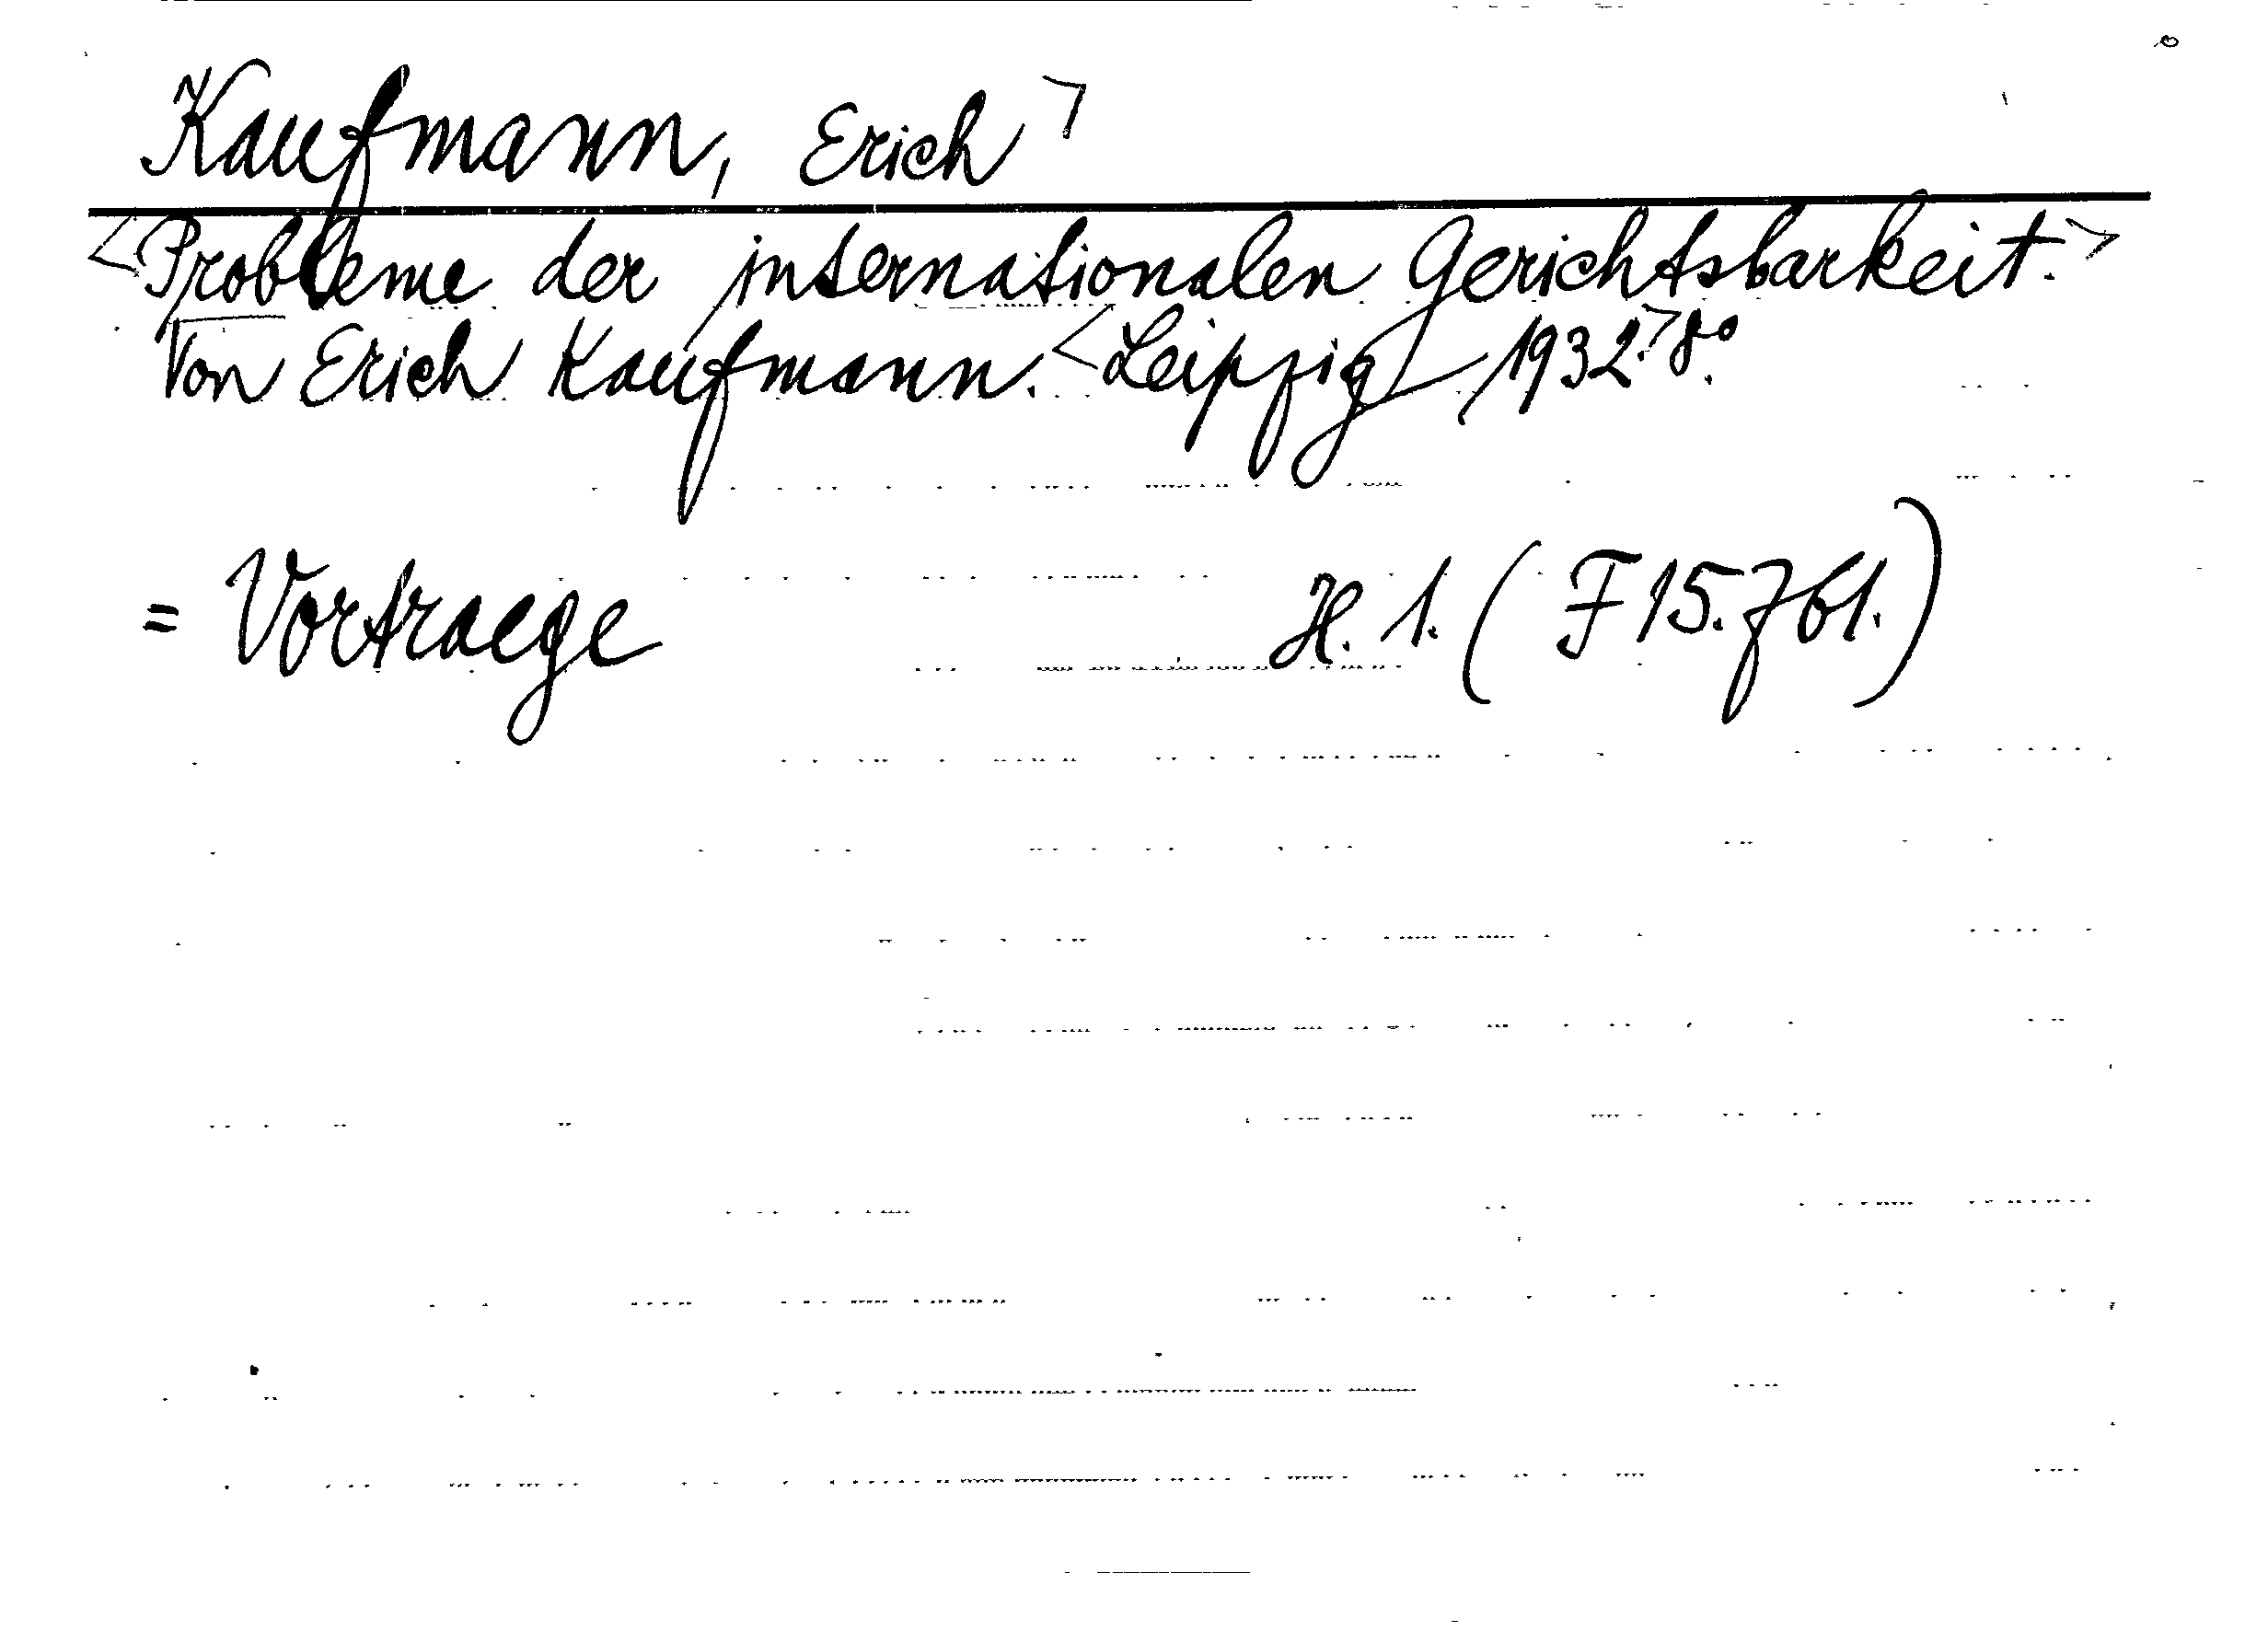 Kaufmann, Erich >
<Probleme der internationalen Gerichtsbarkeit.>
Von Erich Kaufmann. <Leipzig 1932.> 8°.
= Vortraege H. 1. (F 15.761.)